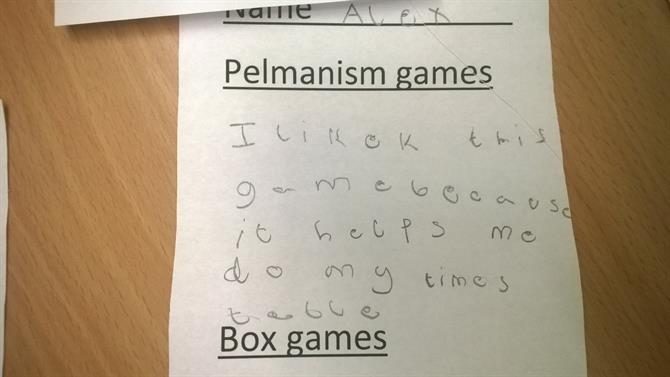 Name Alex
Pelmanism games
I likek this
game because
it helps me
do my times
table
Box games